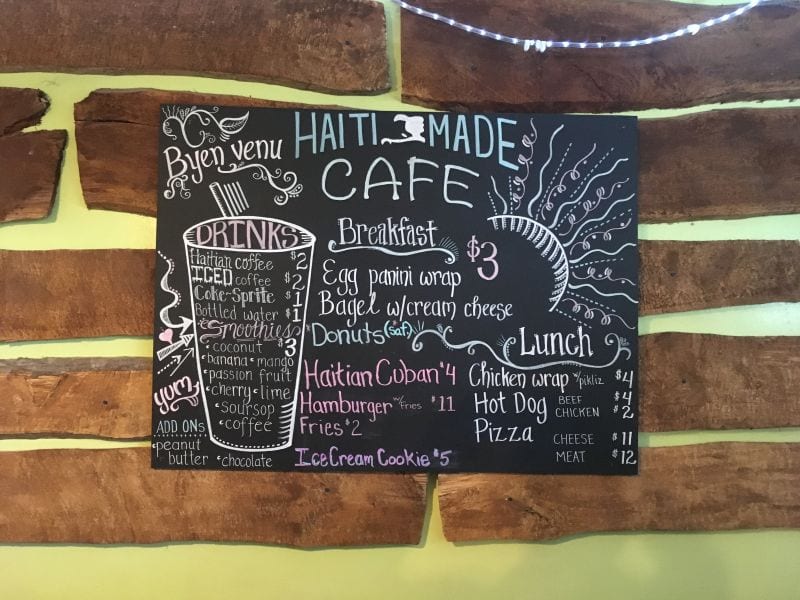 Byen venu
HAITI MADE
CAFE
DRINKS
Haitian coffee $2
ICED coffee $2
Coke-Sprite $1
Bottled water $1
Smoothies $3
• coconut
banana • mango
• passion fruit
• cherry • lime
• soursop
• coffee
yum
ADD ONs
•peanut butter •chocolate
Breakfast $3
Egg panini wrap
Bagel w/cream cheese
Donuts (Saf.)
Haitian Cuban $4
Hamburger w/ Fries $11
Fries $2
Ice Cream Cookie $5
Lunch
Chicken wrap w/pikliz $4
Hot Dog BEEF $4
CHICKEN $2
Pizza
CHEESE $11
MEAT $12